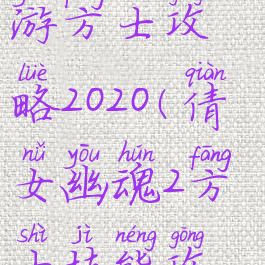 游方士攻
lüè qiàn
略2020(倩
nǚ yōu hún fāng
女幽魂2方
shì jì néng gōng
士技能攻